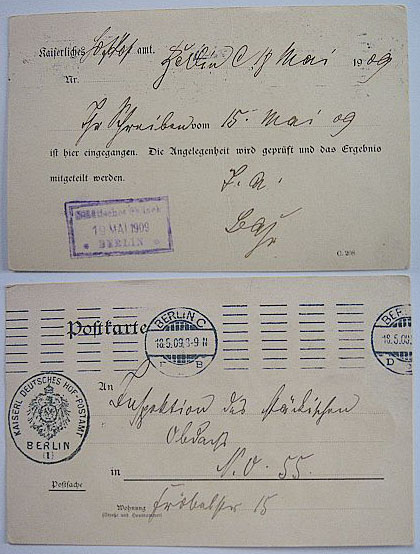 Kaiserliches Hofpost amt. Berlin C 18 Mai 1909
Nr.
Ihr Schreiben vom 15. Mai 09
ist hier eingegangen. Die Angelegenheit wird geprüft und das Ergebnis
mitgeteilt werden.
I. A.
19 MAI 1909
* BERLIN *
C. 208
Postkarte
BERLIN C
18.5.09.8-9 N
B
BER
18.5.09.
D
KAISERL. DEUTSCHES HOF-POSTAMT
BERLIN
(1)
An
Inspektion des städtischen
Obdach
in N.O. 55.
Postsache
Wohnung Fröbelstr 15
(Straße und Hausnummer)